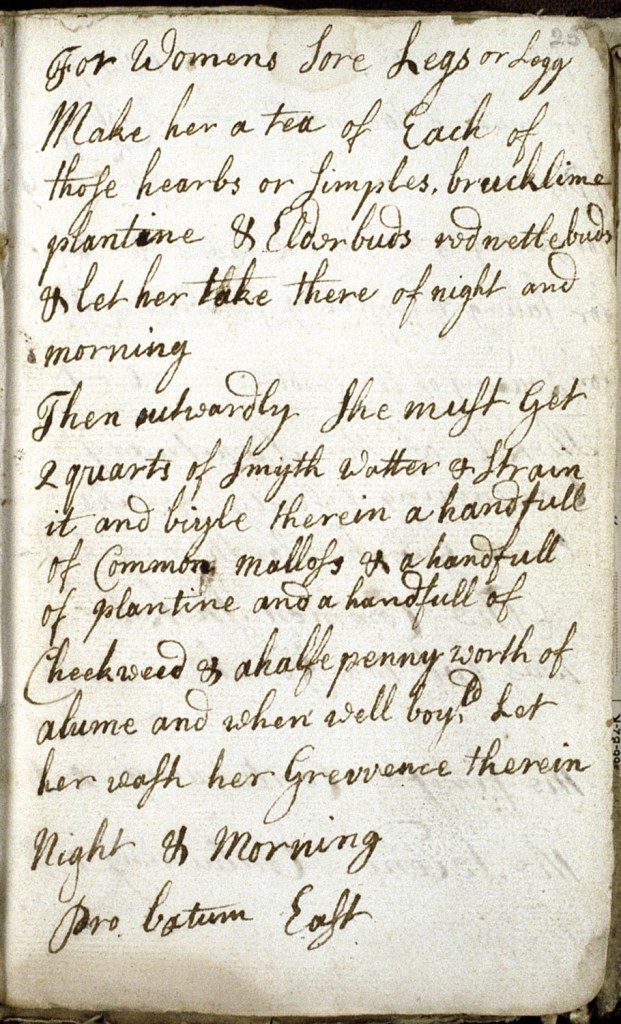 25
For Womens sore Legs or Legg
Make her a tea of Each of
those hearbs or simples, brucklime
plantine & Elderbuds rednettlebuds
& let her take there of night and
morning
Then outwardly she must Get
2 quarts of Smyth watter & strain
it and biyle therein a handfull
of Common malloss & a handfull
of plantine and a handfull of
Cheekweed & a halfe penny worth of
alume and when well boy.ld Let
her wash her Grevvence therein
Night & Morning
Pro batum East